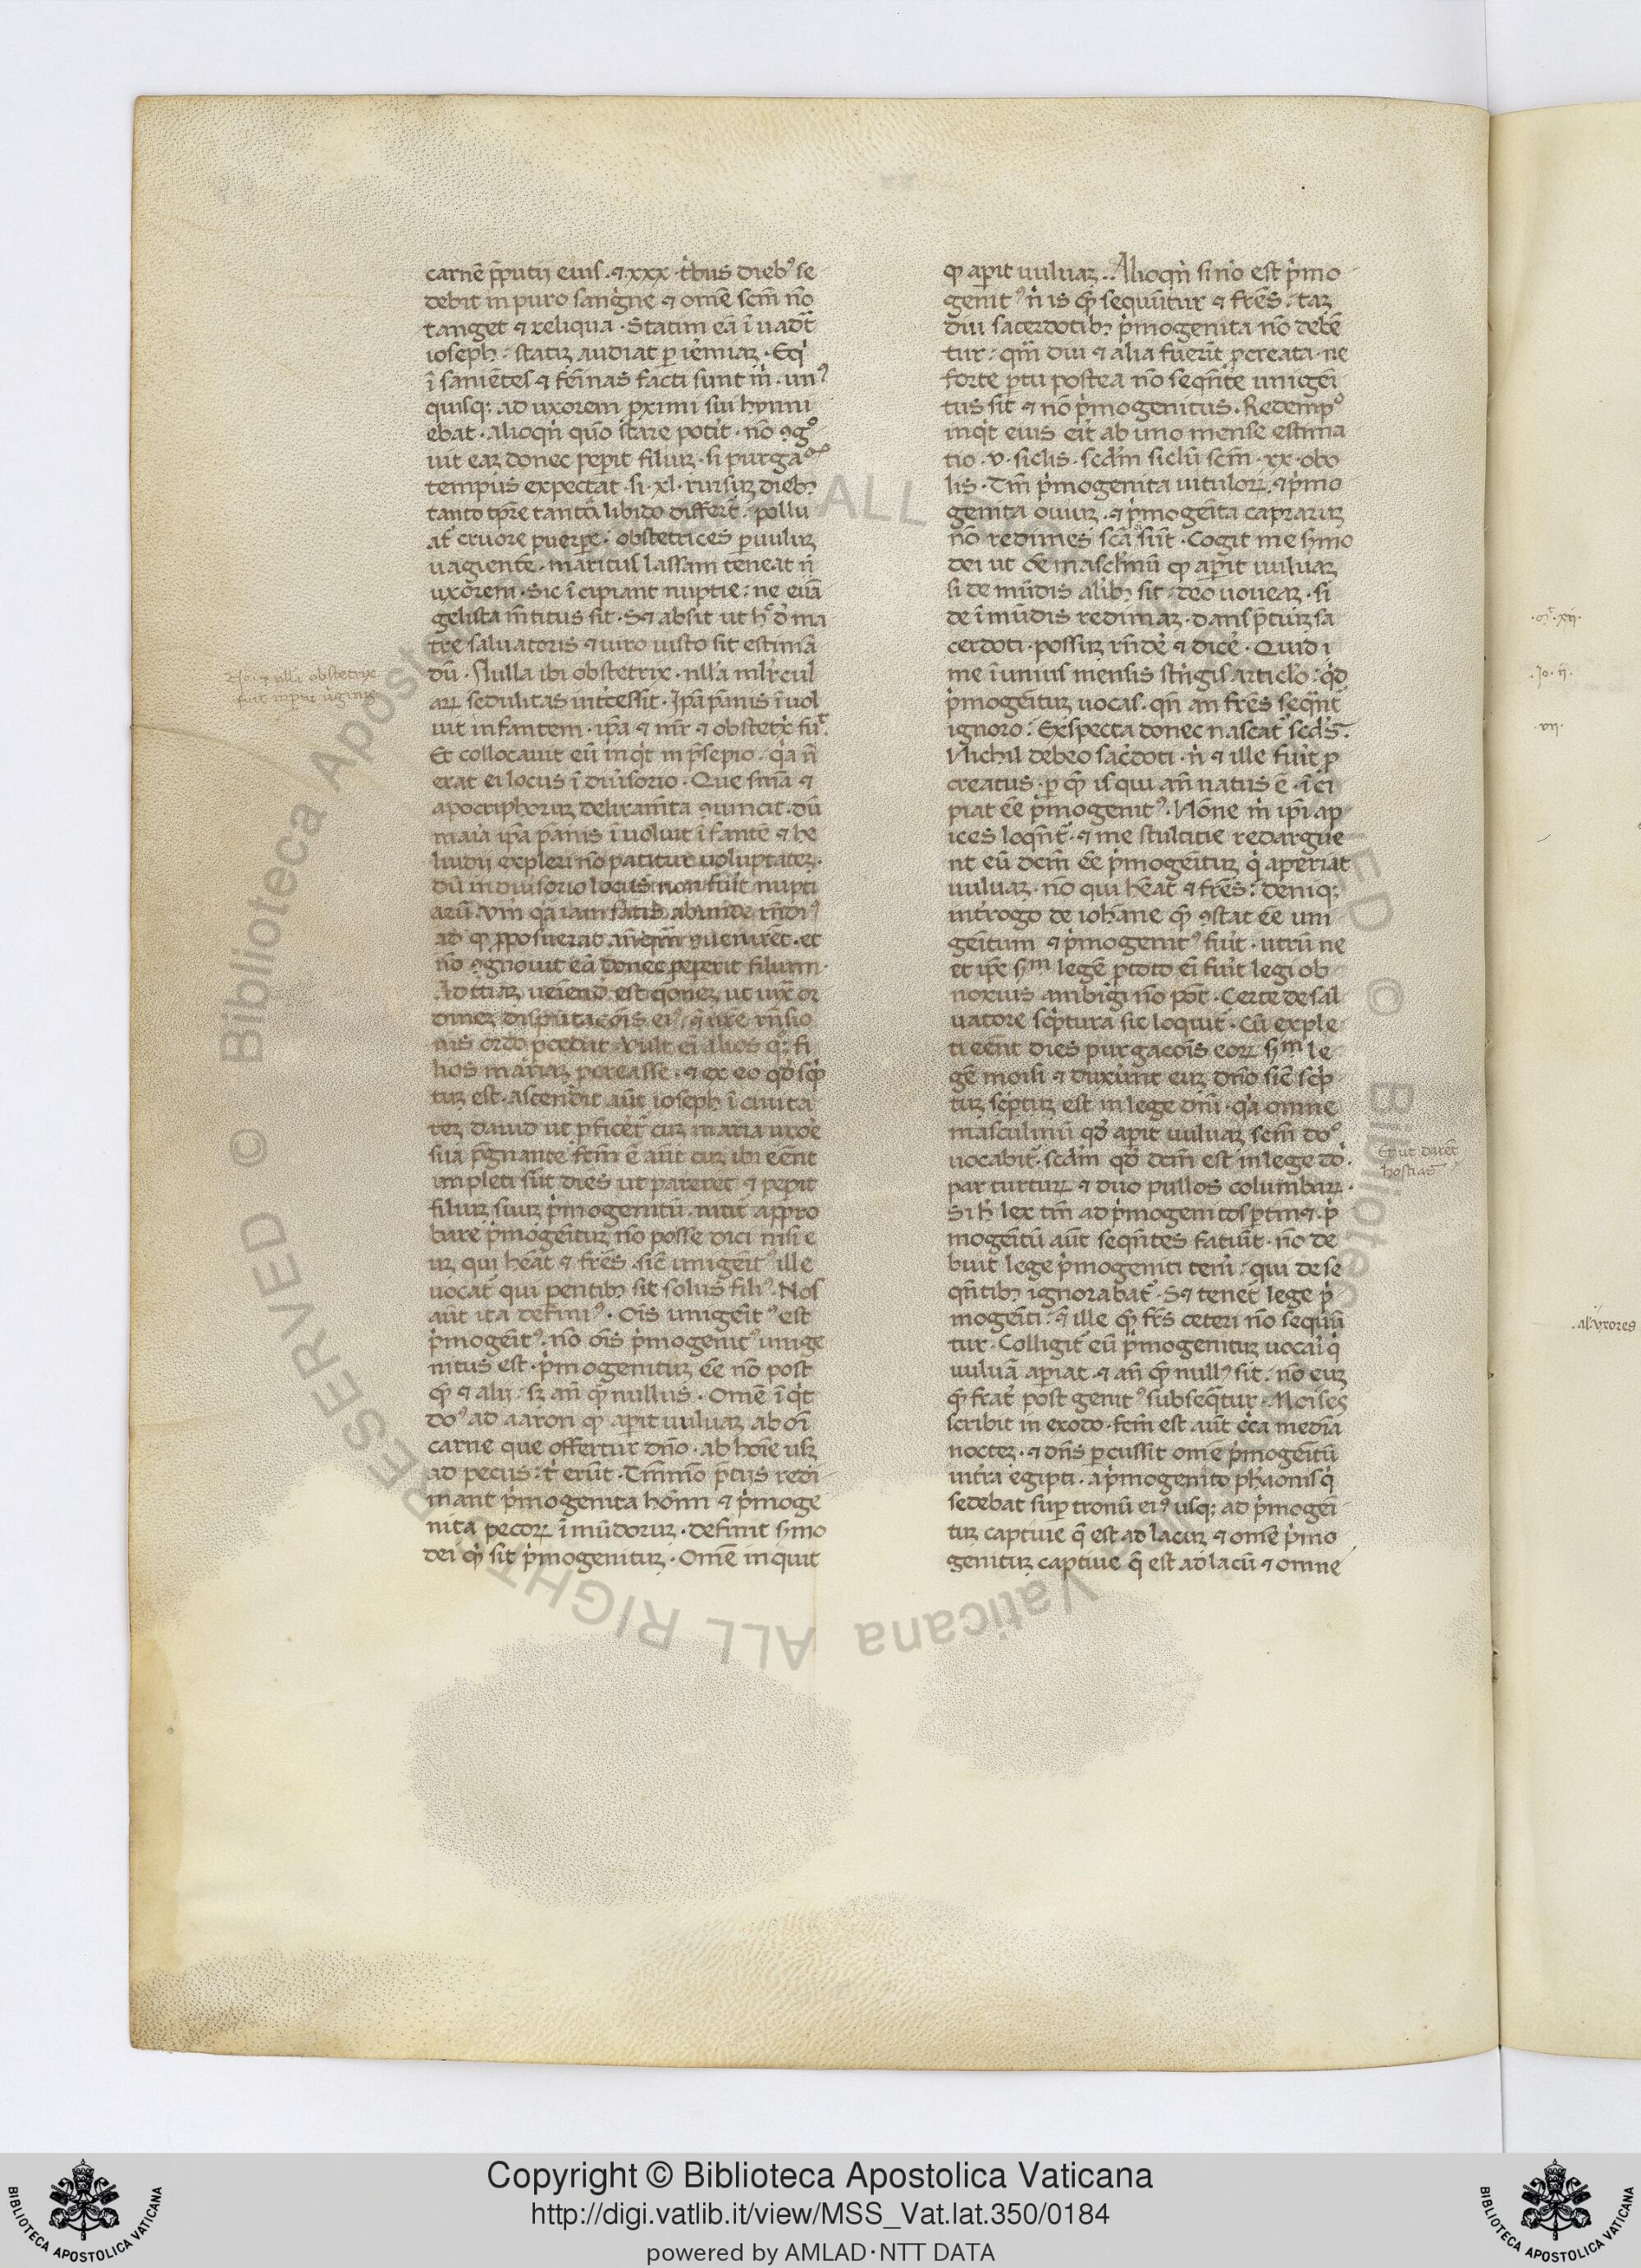 carnē p̄putii eius. ⁊ xxx. t̓bus dieb᷒ se
debit in puro sangͥne ⁊ om̄e sc̄m nō
tanget ⁊ reliqua. Statim eā ī uad̄t
ioseph: statiꝫ audiat ꝑ ie͛miaꝫ. Eq̓
ī sanientes ⁊ fēinas facti sunt m̓. un᷒
quisqꝫ ad uxorem ꝓximi sui hynni
ebat. alioqn̓ quō stare potit̓. nō ꝯgͦ
uit eaꝫ donec peꝑit filiuꝫ. si purgaꝯͥˢ
tempus expectat. si. xl. rursuꝫ diebꝫ
tanto tp̄re tantā libido differt̄. pollu
at̓ cruore puerꝑe. obstetrices ꝑuuluꝫ
uagientē. maritus lassam teneat
uxorem. Sic īcipiant nuptie: ne euā
gelista m̄titus sit. S⁊ absit ut hͨ d̓ ma
tre saluatoris ⁊ uiro iusto sit estimā
dū. Nulla ibi obstetrix. nll̓a ml̓rcul
aꝝ sedulitas int̓cessit. Ip̄a pānis īuol
uit infantem. ip̄a ⁊ mr̄ ⁊ obstetͥx fuͭ.
Et collocauit eū inq̓t in p̄sepio. q̓a n̄
erat ei locus ī diu̓sorio. Que sn̄ia ⁊
apocriphoruꝫ deliram̄ta ꝯuincit. dū
maīa ip̄a pānis īuoluit īfantē ⁊ he
luidii expleri nō patitur uoluptateꝫ.
dū in diuisorio locus non fuit nupti
arū. Vm̄ qa iam satis abunde rn̄di᷒
ad ꝙ ꝓposuerat anteqm̄ ꝯuenirēt. et
nō ꝯgnouit eā donec peperit filium.
Ad tciaꝫ ueniend̓ est
dineꝫ disputacōis ei᷒ r̄nsio
nis ordo ꝓcedat. Vult ei alios qꝫ fi
lios mariaꝫ ꝓcreasse. ⁊ ex eo qd̓ scp̓
tuꝫ est. ascendit aūt ioseph ī ciuita
teꝫ dauid ut ꝓficet̓ cuꝫ maria uxoē
sua p̄gnante. fc̄m ē aūt cuꝫ ibi eēnt
impleti sūt dies ut pareret ⁊ peꝑit
filiuꝫ suuꝫ p̓mogenitū. nitit̓ appro
bare p̓mogēituꝫ nō posse dici nisi e
uꝫ qui hēat ⁊ fr̄es. sic̄ unigeit᷒ ille
uocat̓ qui pentibꝫ sit solus fili᷒. Nos
aūt ita defini᷒. Ois unigeit᷒ est
p̓mogeit᷒. nō ois p̓mogenit᷒ unige
nitus est. p̓mogenituꝫ eē nō post
qͫ ⁊ alii: sꝫ an̄ qͫ nullus. Om̄e īq̓t
do᷒ ad aaron qͫ aꝑit uuluaꝫ ab oī
carne que offertur dn̄o. ab hoīe usꝫ
ad pecus: t̓ erūt. Tm̄mō p̄cus redi
mant p̓mogenita hoīm ⁊ p̓moge
nita pecoꝝ īmūdoruꝫ. definit smo
dei qͩ sit p̓mogenituꝫ. Om̄e inquit
ꝙ aꝑit uuluaꝫ. Alioqn̓ si nō est p̓mo
genit᷒ n̓ is qͫ sequūtur ⁊ fr̄es: taꝫ
diu sacerdotibꝫ p̓mogenita nō debē
tur: qm̄ diu ⁊ alia fuerīt ꝓcreata. ne
forte ꝑtu postea nō seqn̄te unigei
tus sit ⁊ nō p̓mogenitus. Redempͦ
inq̓t eius erit ab uno mense estima
tio. v. siclis. scd̓m siclū sc̄m. xx. obo
lis. Tm̄ p̓mogenita uituloꝝ. ⁊ p̓mo
genita ouiuꝫ. ⁊ p̓mogēita capraruꝫ
nō redimes sc̄a sūt. Cogit me smo
dei ut oē masclinū ꝙ aꝑit uuluaꝫ
si de mūdis alibꝫ sit: deo uoueaꝫ. si
de īmūdis redimaꝫ. dans p̄ciuꝫ sa
cerdoti. possuꝫ rn̄dē ⁊ dicē. Quid i
me ī unius mensis stringis articlo: qͩ
p̓mogēituꝫ uocas. qn̄ an fr̄es seqn̄t̓
ignoro: Exspecta donec nascat̓ scd̓s.
Nichil debeo sac̓doti. n̓ ⁊ ille fuit̓ ꝓ
creatus. ꝑ qͫ is qui an̄ natus ē. īci
piat eē p̓mogenit᷒. Nōne m̓ ip̄i ap
ices loqn̄t̓. ⁊ me stultitie redargue
nt eū dcm̄ eē p̓mogēituꝫ q̓ aperiat
uuluaꝫ. nō qui hēat ⁊ fr̄es: deniqꝫ
int̓rogo de iohāne qͫ ꝯstat eē uni
geitum ⁊ p̓mogenit᷒ fuit̓. utrū ne
et ip̄e sᵐ legē ꝑ toto ei fuit̓ legi ob
noxius ambigi nō pōt. Certe de sal
uatore scp̓tura sic loquit̓. Cū exple
ti eēnt dies purgacōis eoꝝ sᵐ le
gē moisi ⁊ duxūnt euꝫ dn̄o sic̄ scp̓
tuꝫ scp̓tuꝫ est in lege dn̄i. q̓a omne
masculinū qd̓ aꝑit uuluaꝫ sc̄m doᷤ
uocabit̓. scd̓m qd̓ dcm̄ est in lege do.
par turturꝝ ⁊ duo pullos columbaꝝ.
Si h̓ lex tm̄ ad p̓mogenitos ꝑtin⁊. p̓
mogēitū aūt seqn̄tes fatiūt. nō de
buit lege p̓mogeniti teni: qui de se
qn̄tibꝫ ignorabat̓. S⁊ tenet̓ lege p̓
mogeiti: ⁊ ille qͫ fr̄s ceteri nō sequū
tur. Colligit̓ eū p̓mogenituꝫ uocai q̓
uuluā aꝑiat. ⁊ an̄ qͫ null᷒ sit: nō euꝫ
qͫ frat̓ post genit᷒ subseqtur. Moises
scribit in exodo. fc̄m est aūt cca mediā
nocteꝫ. ⁊ dn̄s ꝑcussit om̄e p̓mogēitū
int̓ra egipti. a p̓mogenito pharaonis q̓
sedebat suꝑ tronū ei᷒ usqꝫ ad p̓mogei
tuꝫ captiuie q̄ est ad lacuꝫ ⁊ om̄e p̓mo
genituꝫ captiue q̄ est ad lacū ⁊ omne
No. ⁊ ulla obstetrix
fuit in ptu uiginis
Et ut darēt
hostias
.xii.
.Jo. ii.
.vii.
.al. uxores
Biblioteca Apostolica Vaticana ALL RIGHTS RESERVED ©
Copyright © Biblioteca Apostolica Vaticana
http://digi.vatlib.it/view/MSS_Vat.lat.350/0184
powered by AMLAD·NTT DATA
BIBLIOTECA APOSTOLICA VATICANA
BIBLIOTECA APOSTOLICA VATICANA